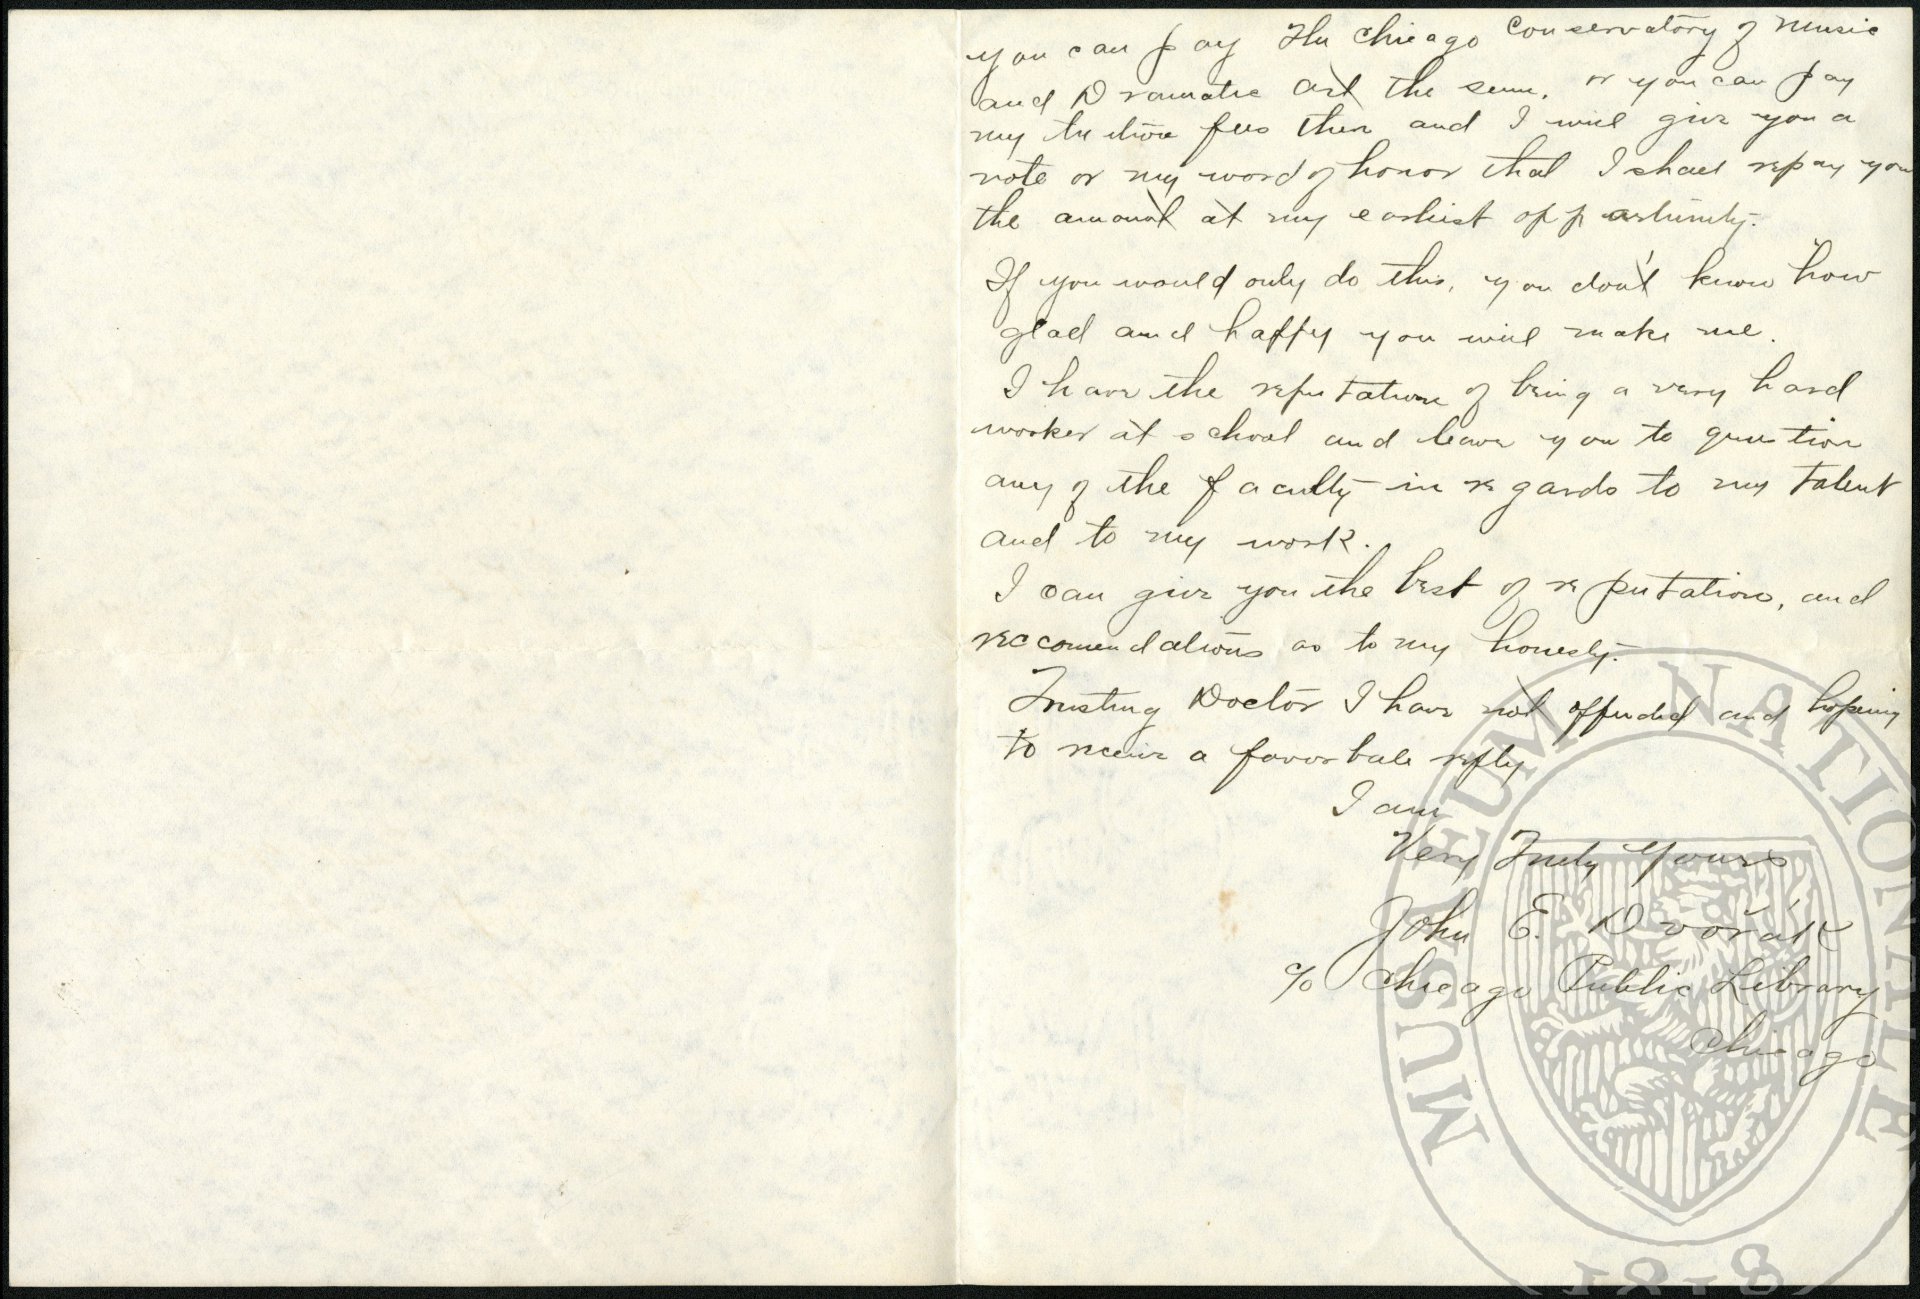 you can pay The Chicago Conservatory of Music
and Dramatic art the sum, or you can pay
my tuition fees then and I will give you a
note or my word of honor that I shall repay you
the amount at my earliest opportunity.
If you would only do this, you don't know how
glad and happy you will make me.
I have the reputation of being a very hard
worker at school and leave you to question
any of the faculty in regards to my talent
and to my work.
I can give you the best of reputation, and
reccomendations as to my honesty.
Trusting Doctor I have not offended and hoping
to receive a favorbale reply
I am
Very Truly Yours
John E. Dvořák
c/o Chicago Public Library
Chicago
MUSAEUM NATIONALE
1818